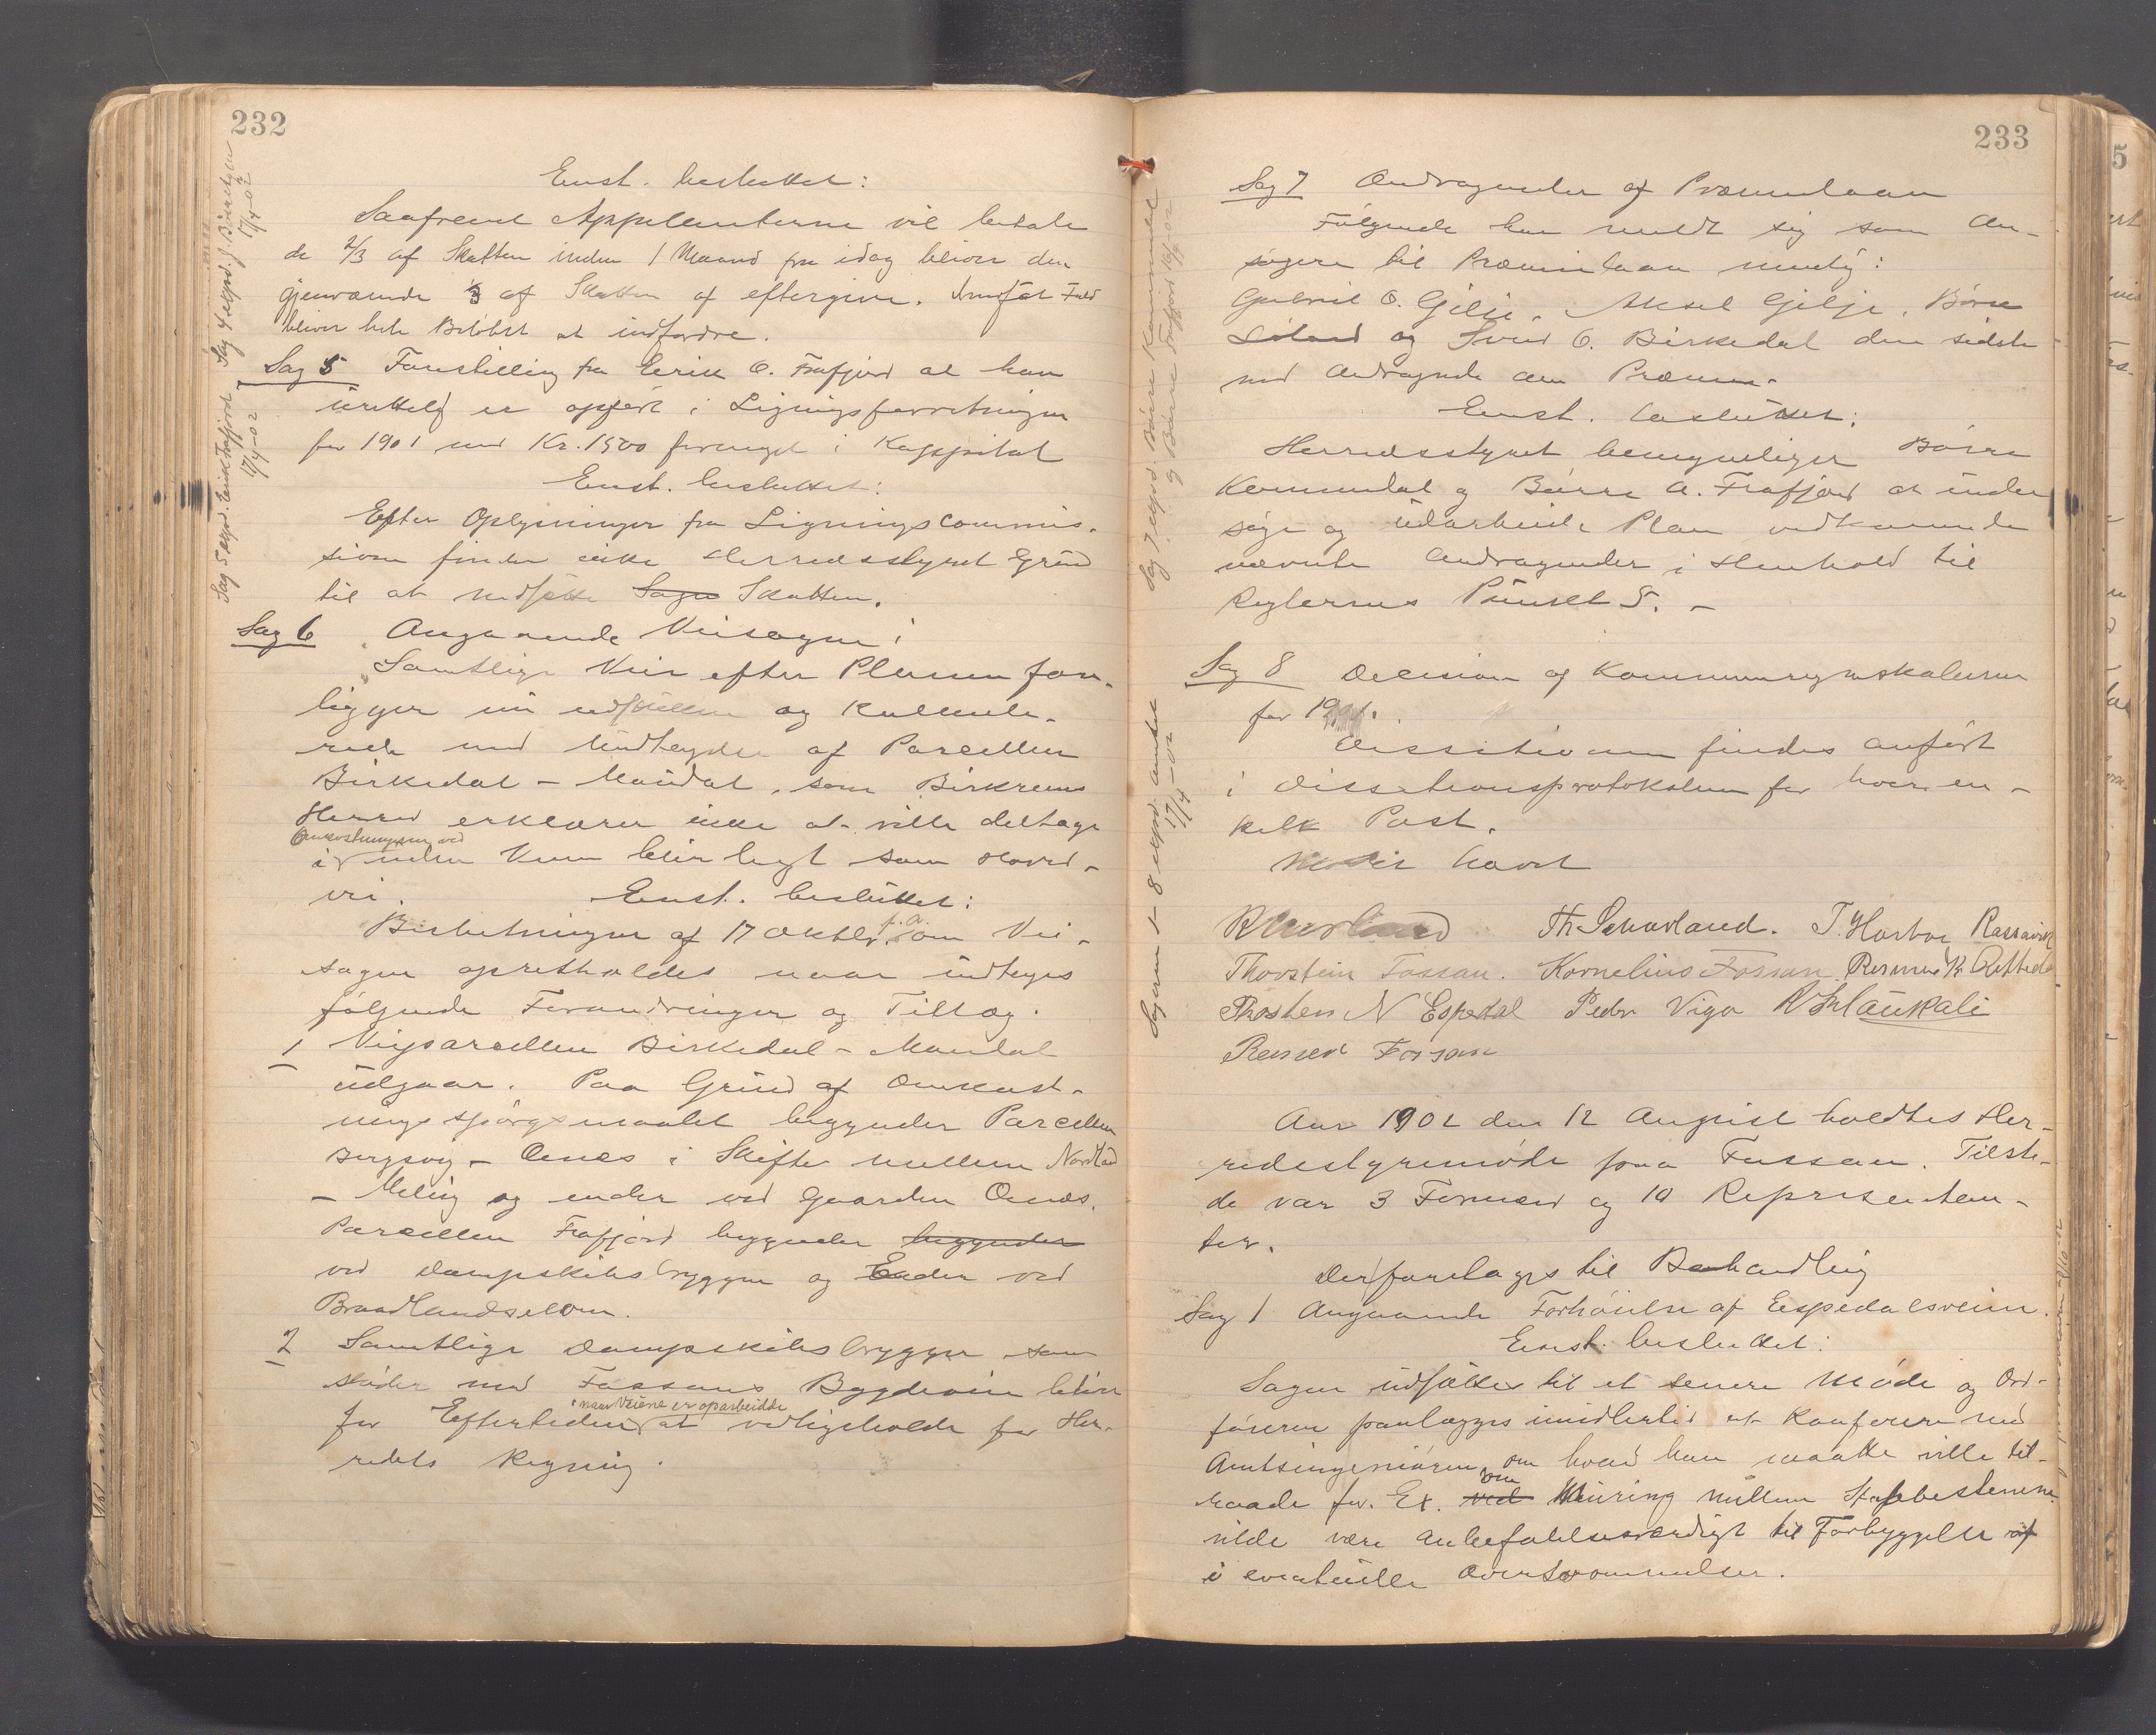 232
Enst. besluttet:
Saafremt Appellanterne vil betale
de 2/3 af Skatten inden 1 Maaned fra idag bliver den
gjenværende 1/3 af Skatten at eftergive. Fald
bliver hele Beløbet at indfordre.
Sag 5 Forestilling fra Eerik O. Frafjord at han
urettelig er opført i Ligningsforretningen
for 1901 med Kr. 1500 formeget i Kappital
Enst. besluttet:
Efter Oplysninger fra Ligningscommis-
sionen finder ikke Herredsstyret Grund
til at nedsætte Sagen Skatten.
Sag 6 Angaaende Veisagen:
Samtlige Veie efter Planen fore-
ligger nu udstukken og Kalkule-
rede med Undtagelse af Parcellen
Birkedal - Maudal, som Birkrems
Herred erklærer ikke at ville deltage
Omkostningerne ved
i uden Veien blir lagt som Hoved-
vei. Enst. besluttet:
Beslutningen af 17 Oktbr. f. A. om Vei-
sagen opretholdes naar undtages
følgende Forandringer og Tillæg.
1 Veiparcellen Birkedal - Maudal
udgaar. Paa Grund af Omkost-
ningsspørgsmaalet begynder Parcellen
Bergsvig - Oenæs i Skiftet mellem Nordland
- Meling og ender ved Gaarden Oenæs.
Parcellen Frafjord begynder begynder
ved Dampskibsbryggen og Ender ved
Braadlandselven.
2 Samtlige Dampskibsbrygger som
støder med Fossans Bygdevei bliver
naar Veiene er oparbeidde
for Eftertiden at vedligeholde for Her-
redets Regning.
Sag 4 exped. J. 17/4-02
Sag 5 exped. Eerik Frafjord 17/4-02
233
Sag 7 Andragender af Præmielaan
Følgende har meldt sig som An-
søgere til Præmielaan nemlig:
Gabriel O. Gilje. Aksel Gilje, Børre
og Svend O. Birkedal den sidste
med Andragende om Præmie.
Enst. besluttet:
Herredsstyret bemyndiger Børre
Kommedal og Børre A. Frafjord at under
søge og udarbeide Plan vedkommende
nævnte Andragender i Henhold til
Reglernes Punkt 5. -
Sag 8 Decision af Kommuneregnskaberne
for 1901.
Dissitionen findes anført
i Dissitionsprotokollen for hver en-
kelt Post.
Mødet hævet
Th. Scharland. T. Hosbor
Thorstein Fossan. Kornelius Fossan Rasmus K. Rettedal
Thosten N Espedal Peder Viga R Haukali
Rasmus Fossan
Aar 1902 den 12 August holdtes Her-
redsstyremøde paa Fossan. Tilste-
de var 3 Formænd og 10 Representan-
ter.
Der foretages til Behandling
Sag 1 Angaaende Forhøielse af Eespedalsveien.
Enst. besluttet:
Sagen udsættes til et senere Møde og Ord-
føreren paalægges imidlertid at Konferere med
Amtsingeniøren om hvad han maatte ville til-
om
raade for. Ex. ved Muring mellem Stabbestenene
vilde være anbefalelsesværdigt til Forbyggelse af
i eventuelle Oversvømmelser.
Sag 7 exped. Børre Kommedal
og Børre Frafjord 16/4-02
Sagerne 1 - 8 exped. Amtet
17/4-02